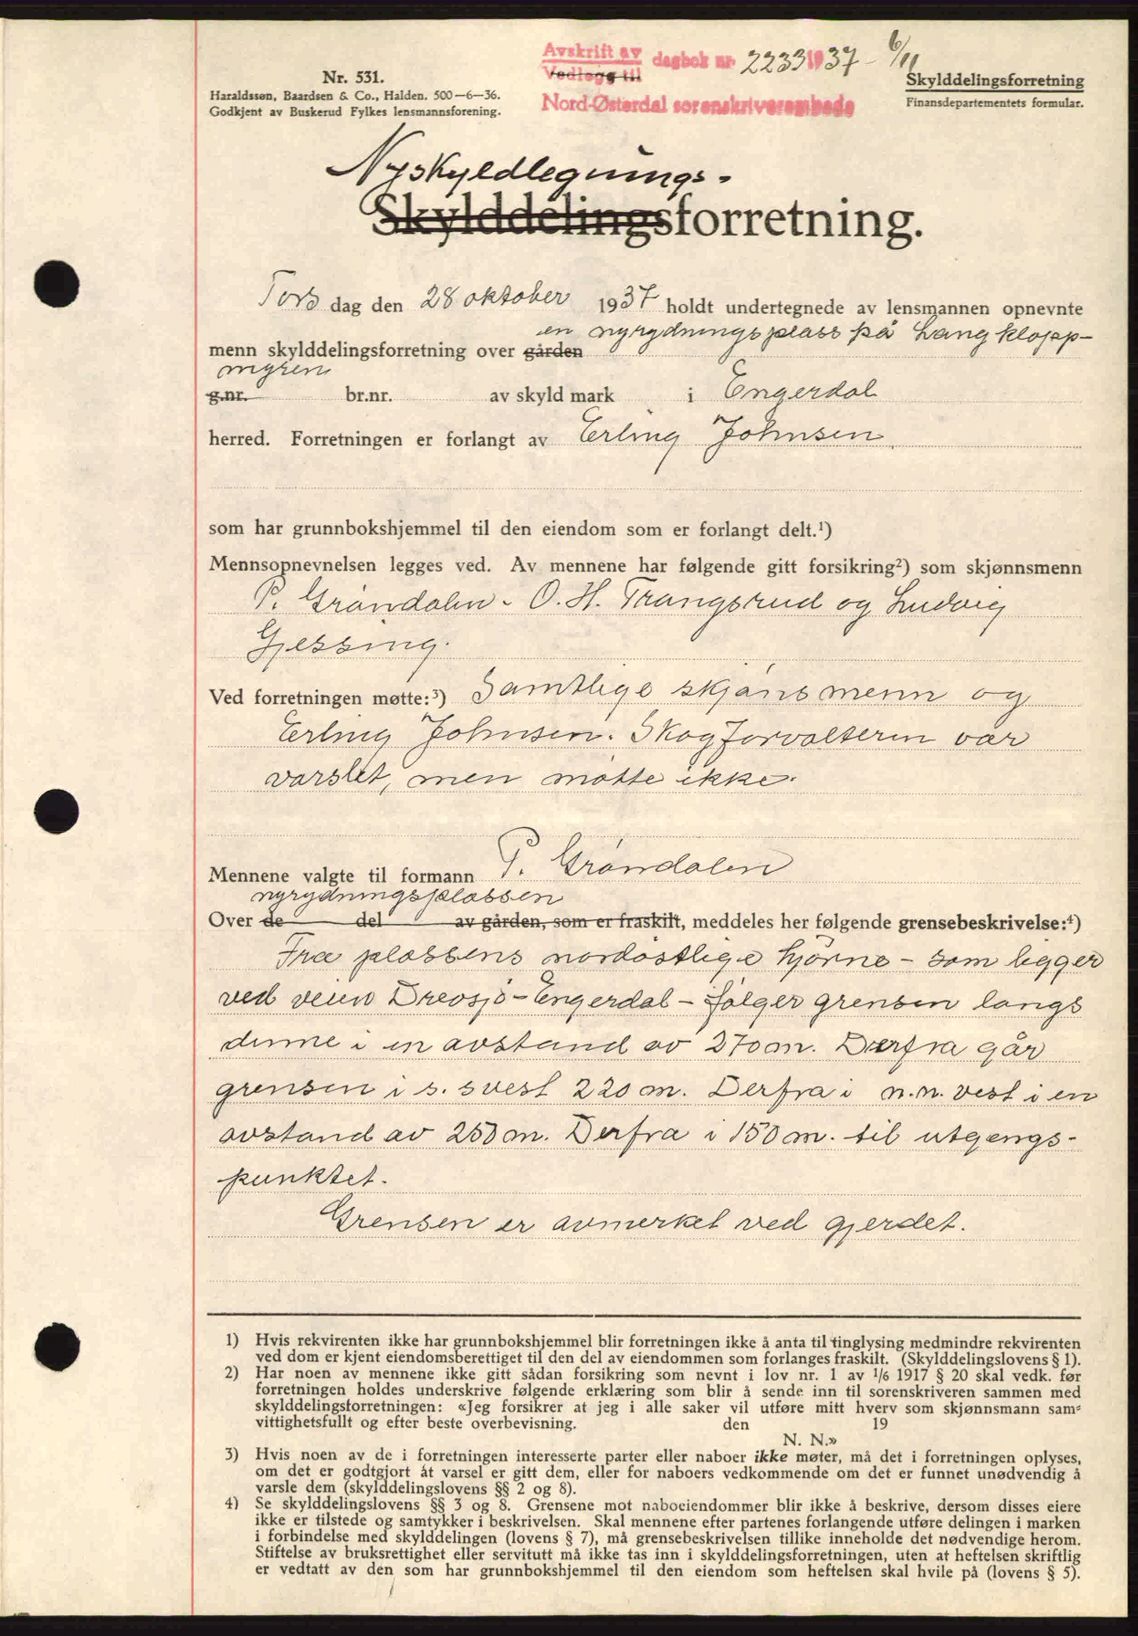 Avskrift av
Vedlegg til
dagbok nr. 2233 1937 - 6/11
Nord-Østerdal sorenskriverembede
Nr. 531.
Haraldssøn, Baardsen & Co., Halden. 500—6—36.
Godkjent av Buskerud Fylkes lensmannsforening.
Skylddelingsforretning
Finansdepartementets formular.
Nyskyldlegnings-
Skylddelingsforretning.
Torsdag den 28 oktober 1937 holdt undertegnede av lensmannen opnevnte
en nyrydningsplass på Langklopp-
menn skylddelingsforretning over gården
myren
g.nr. br.nr. av skyld mark i Engerdal
herred. Forretningen er forlangt av Erling Johnsen
som har grunnbokshjemmel til den eiendom som er forlangt delt.¹)
Mennsopnevnelsen legges ved. Av mennene har følgende gitt forsikring²) som skjønnsmenn
P. Grøndalen. O. H. Trangsrud og Ludvig
Gjessing.
Ved forretningen møtte:³) Samtlige skjønsmenn og
Erling Johnsen. Skogforvalteren var
varslet, men møtte ikke.
Mennene valgte til formann P. Grøndalen
nyrydningsplassen
Over de del av gården, som er fraskilt, meddeles her følgende grensebeskrivelse:⁴)
Fra plassens nordøstlige hjørne - som ligger
ved veien Drevsjø-Engerdal - følger grensen langs
denne i en avstand av 270 m. Derfra går
grensen i s. svest 220 m. Derfra i n.n. vest i en
avstand av 250 m. Derfra i 150 m. til utgangs-
punktet.
Grensen er avmerket ved gjerdet.
1) Hvis rekvirenten ikke har grunnbokshjemmel blir forretningen ikke å anta til tinglysing medmindre rekvirenten
ved dom er kjent eiendomsberettiget til den del av eiendommen som forlanges fraskilt. (Skylddelingslovens § 1).
2) Har noen av mennene ikke gitt sådan forsikring som nevnt i lov nr. 1 av 1/6 1917 § 20 skal vedk. før
forretningen holdes underskrive følgende erklæring som blir å sende inn til sorenskriveren sammen med
skylddelingsforretningen: «Jeg forsikrer at jeg i alle saker vil utføre mitt hverv som skjønnsmann sam-
vittighetsfullt og efter beste overbevisning. den 19
N. N.»
3) Hvis noen av de i forretningen interesserte parter eller naboer ikke møter, må det i forretningen oplyses,
om det er godtgjort at varsel er gitt dem, eller for naboers vedkommende om det er funnet unødvendig å
varsle dem (skylddelingslovens §§ 2 og 8).
4) Se skylddelingslovens §§ 3 og 8. Grensene mot naboeiendommer blir ikke å beskrive, dersom disses eiere
ikke er tilstede og samtykker i beskrivelsen. Skal mennene efter partenes forlangende utføre delingen i marken
i forbindelse med skylddelingen (lovens § 7), må grensebeskrivelsen tillike inneholde det nødvendige herom.
Stiftelse av bruksrettighet eller servitutt må ikke tas inn i skylddelingsforretningen, uten at heftelsen skriftlig
er vedtatt av den som har grunnbokshjemmel til den eiendom som heftelsen skal hvile på (lovens § 5).